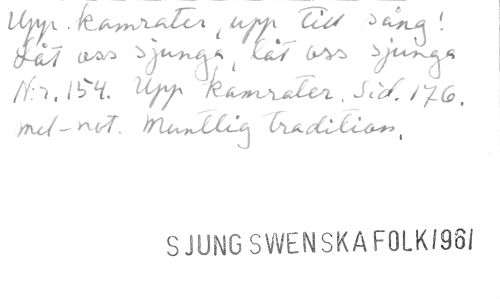 Upp kamrater, upp till sång!
Låt oss sjunga, låt oss sjunga
N:r. 154. Upp kamrater. Sid. 176.
mel-not. Muntlig tradition.
SJUNG SWENSKA FOLK/1961